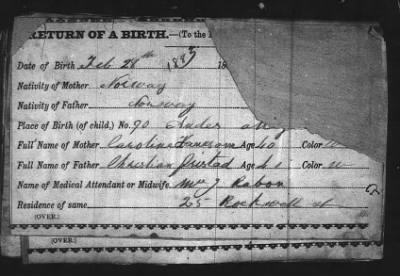 RETURN OF A BIRTH.—(To the
Date of Birth Feb 28th 1883 18
Nativity of Mother Norway
Nativity of Father Norway
Place of Birth (of child.) No. 90
Full Name of Mother Caroline Age 40 Color W
Full Name of Father Christian Age 41 Color W
Name of Medical Attendant or Midwife, Mrs J. Rabon
Residence of same 25 Rockwell st
(OVER.)
(OVER.)